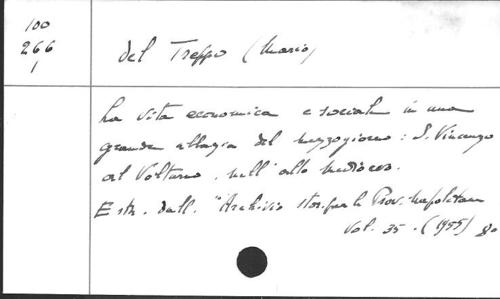 100
266
1
del Treppo (Mario)
La vita economica e sociale in una
grande abbazia del mezzogiorno: S. Vincenzo
al Volturno nell'alto medioevo.
Estr. dall' "Archivio stor. per le Prov. napoletane
Vol. 35. (1955) 8o